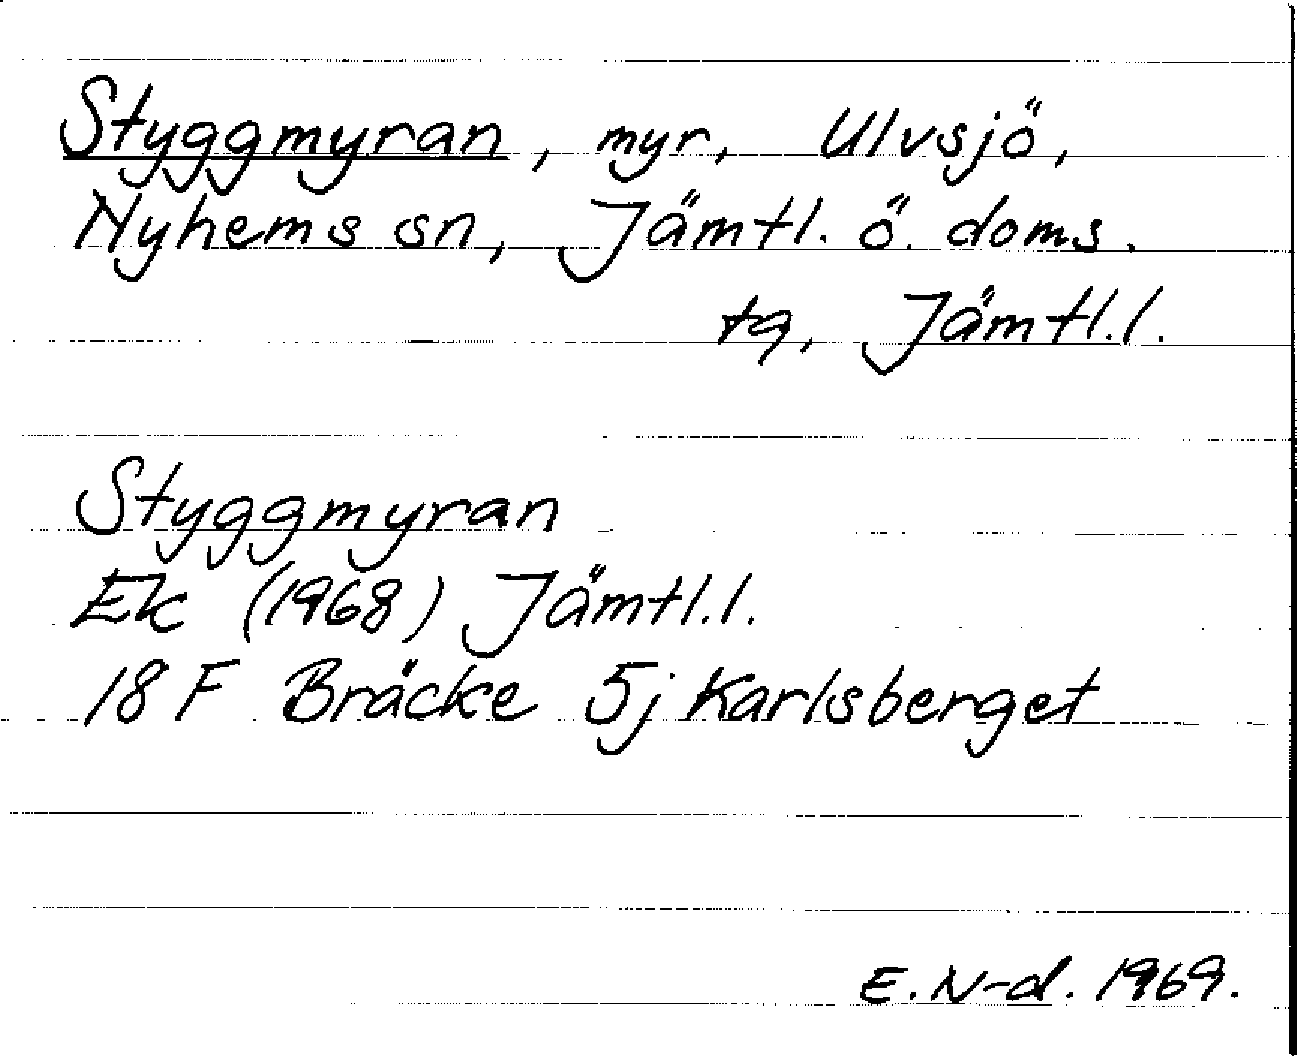 Styggmyran, myr, Ulvsjö,
Nyhems sn, Jämtl. ö. doms.
tg, Jämtl.l.
Styggmyran
Ek (1968) Jämtl.l.
18 F Bräcke 5j Karlsberget
E. N-d. 1969.